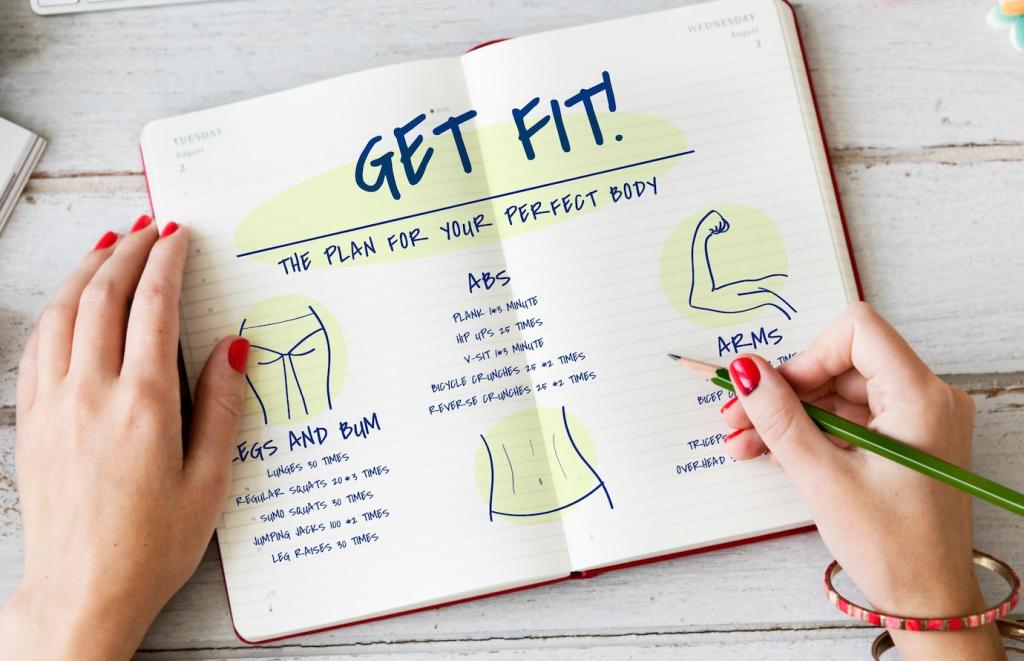 TUESDAY
August
2
WEDNESDAY
August
3
GET FIT!
THE PLAN FOR YOUR PERFECT BODY
LEGS AND BUM
LUNGES 30 TIMES
REGULAR SQUATS 20*3 TIMES
SUMO SQUATS 30 TIMES
JUMPING JACKS 100 *2 TIMES
LEG RAISES 30 TIMES
ABS
PLANK 1*3 MINUTE
HIP UPS 25 TIMES
V-SIT 1*3 MINUTE
BICYCLE CRUNCHES 25 *2 TIMES
REVERSE CRUNCHES 25 *2 TIMES
ARMS
BICEP
TRICEPS
OVERHEAD